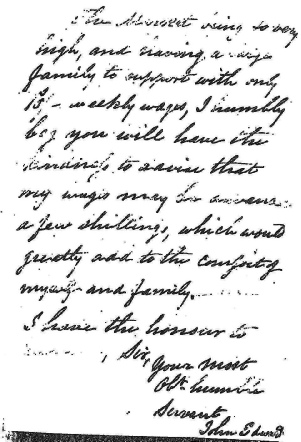 The Market being so very
high, and having a large
family to support with only
13/- weekly wages, I humbly
beg you will have the
kindness to that
my wages may be
a few shillings, which would
greatly add to the comfort of
and family.
I have the honour to
, Sir,
Your most
Obt. humble
Servant
John Edwards